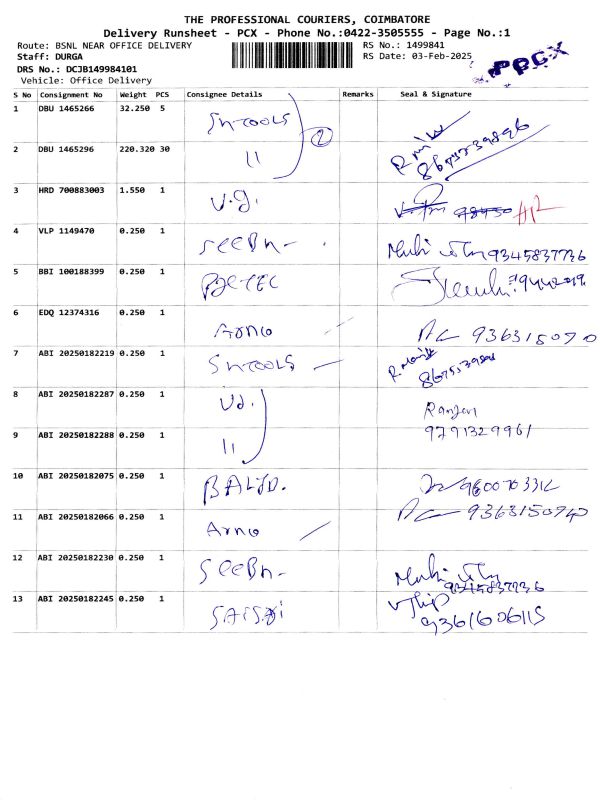 THE PROFESSIONAL COURIERS, COIMBATORE
Delivery Runsheet - PCX - Phone No.:0422-3505555 - Page No.:1
Route: BSNL NEAR OFFICE DELIVERY RS No.: 1499841
Staff: DURGA RS Date: 03-Feb-2025
PPCX
DRS No.: DCJB149984101
Vehicle: Office Delivery
S No Consignment No Weight PCS Consignee Details Remarks Seal & Signature
1 DBU 1465266 32.250 5 Sntools
2
2 DBU 1465296 220.320 30 11 8675739896
3 HRD 700883003 1.550 1 V.g.
4 VLP 1149470 0.250 1 SeeBn - 9345837736
5 BBI 100188399 0.250 1
6 EDQ 12374316 0.250 1 Arno 9363150790
7 ABI 20250182219 0.250 1 Sntools
8 ABI 20250182287 0.250 1 Vd. Ranjan
9 ABI 20250182288 0.250 1 11 9791329961
10 ABI 20250182075 0.250 1
11 ABI 20250182066 0.250 1 Arno
12 ABI 20250182230 0.250 1 SeeBn - 9345837736
13 ABI 20250182245 0.250 1 9361606115